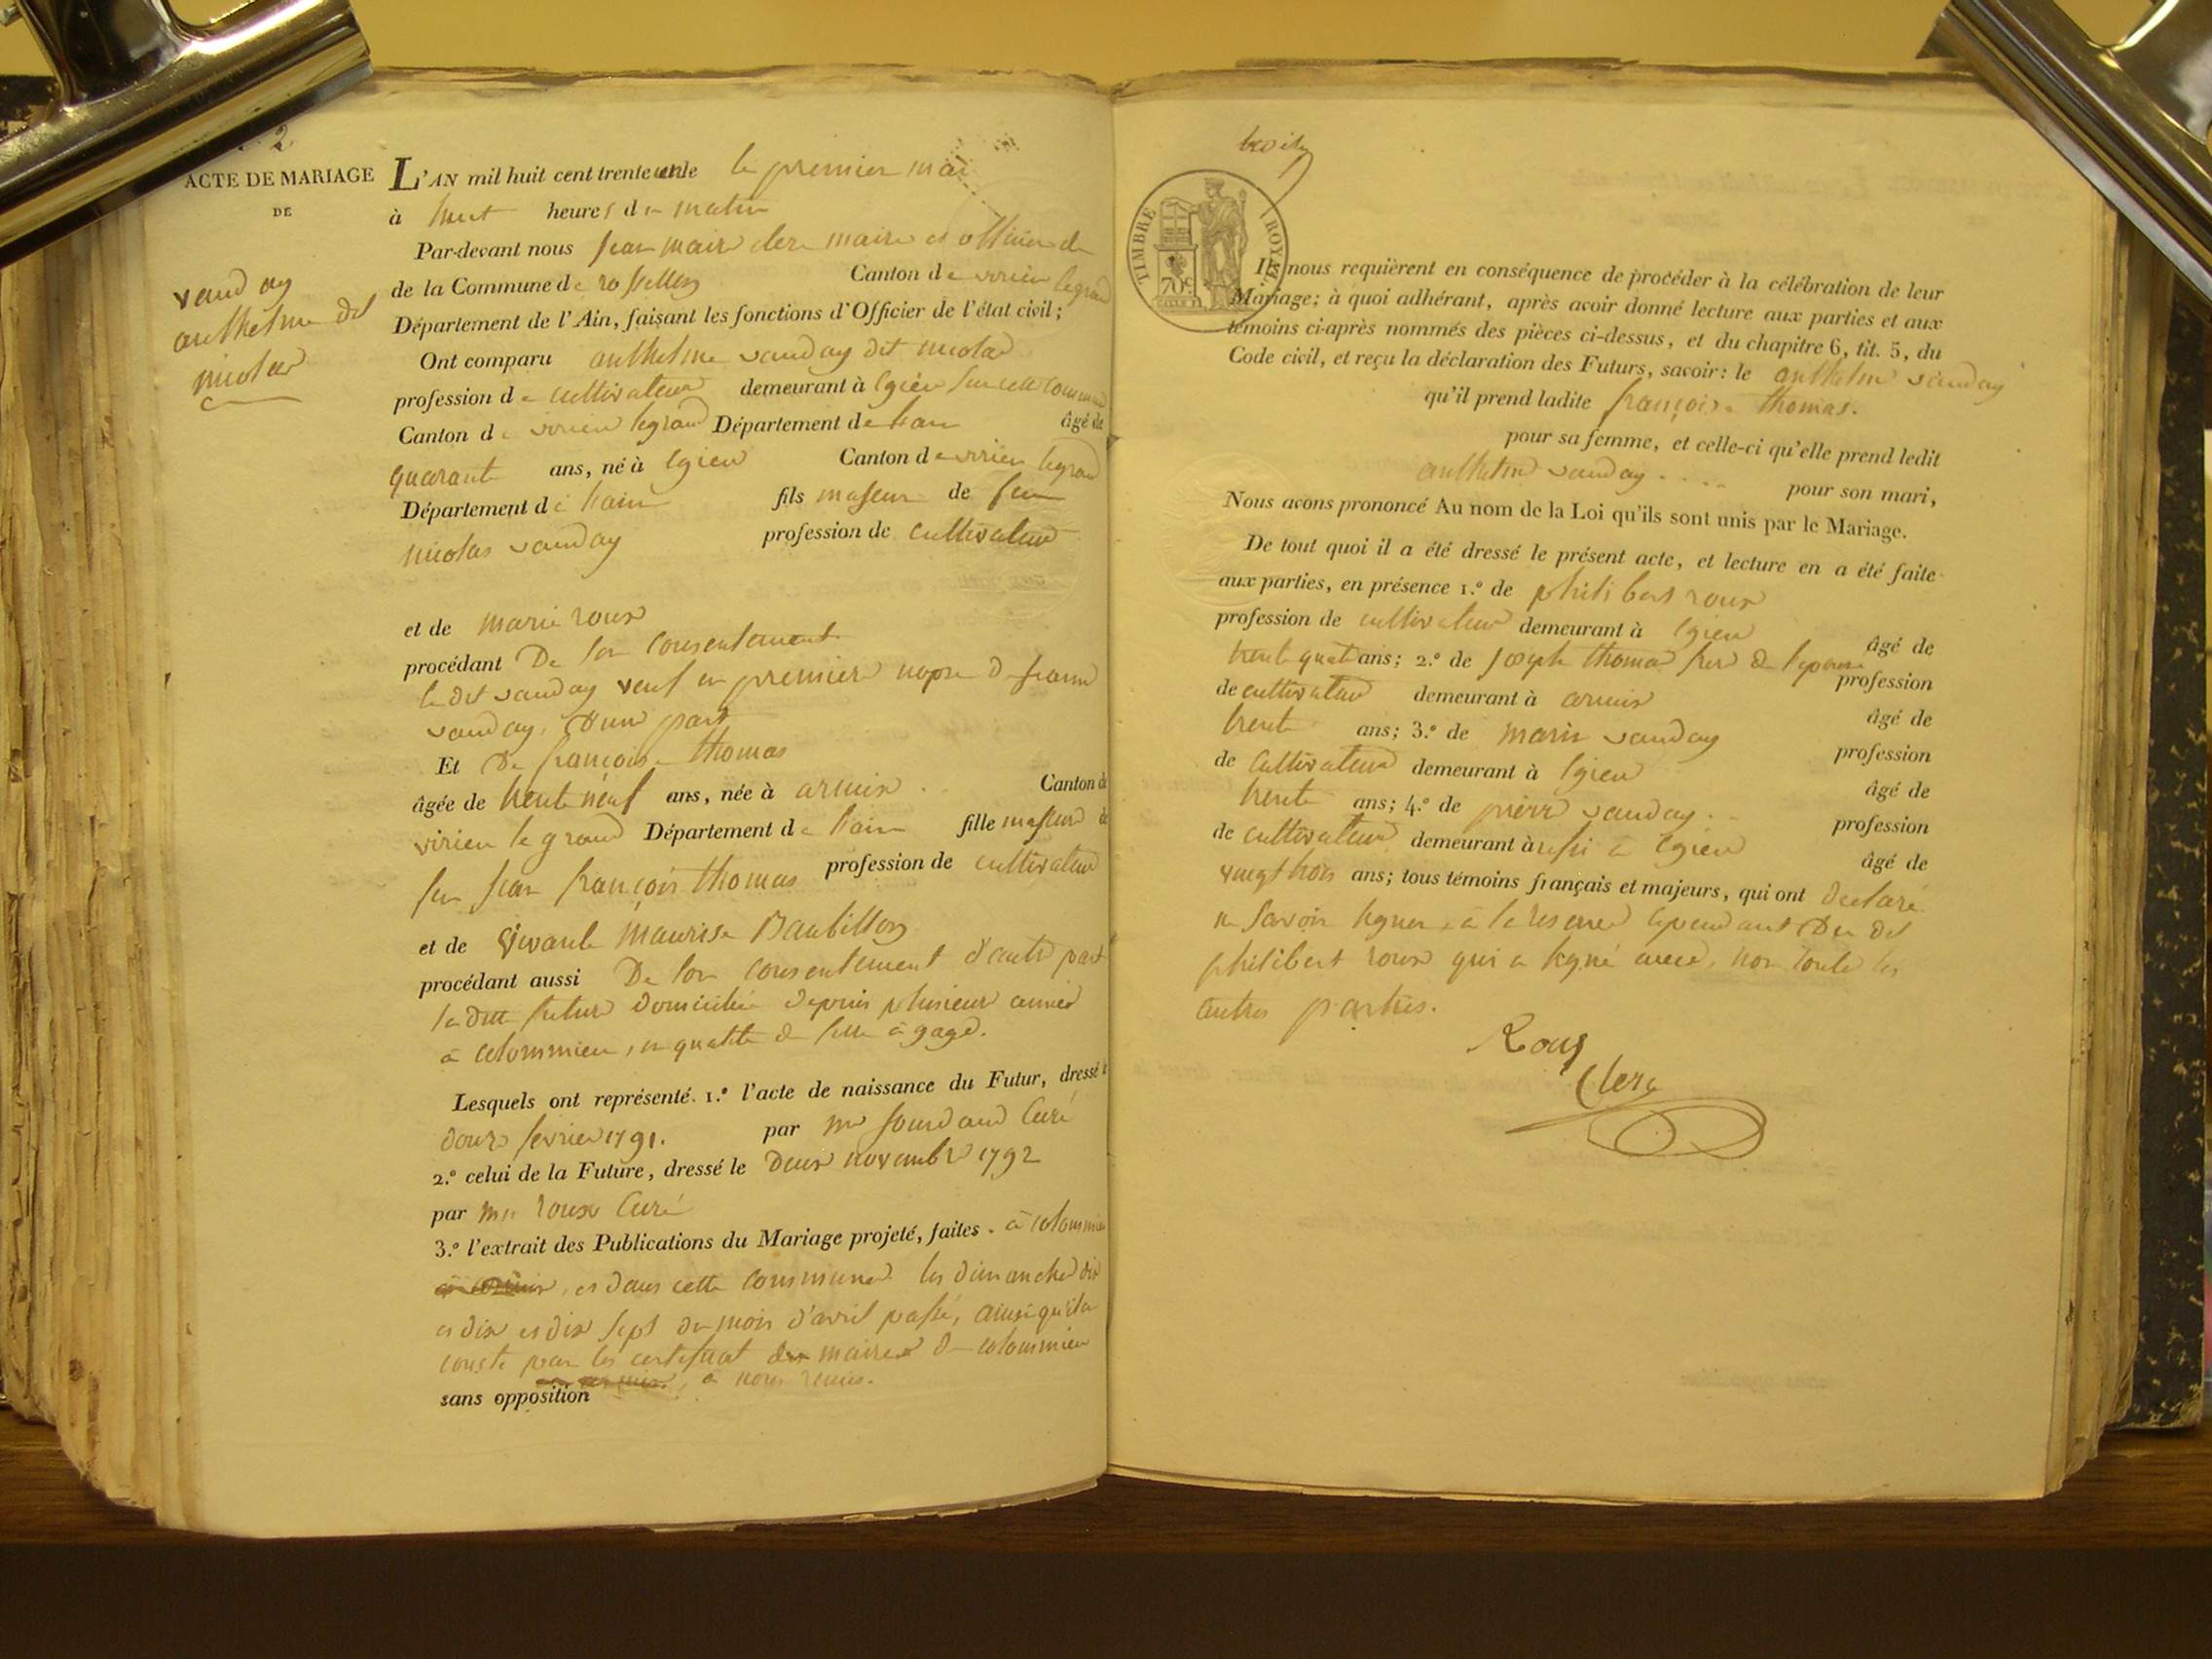 2
ACTE DE MARIAGE
DE
vauday
anthelme dit
nicolas
L'AN mil huit cent trente un le premier mai
à huit heures de matin
Par-devant nous jean marie clerc maire et officier de
de la Commune de rossillon Canton de virieu legrand
Département de l'Ain, faisant les fonctions d'Officier de l'état civil;
Ont comparu anthelme vauday dit nicolas
profession de cultivateur demeurant à Egieu sur cette commune
Canton de virieu legrand Département de lain âgé de
quarante ans, né à Egieu Canton de virieu legrand
Département de lain fils majeur de feu
nicolas vauday profession de cultivateur
et de marie roux
procédant De son consentement
le dit vauday veuf en premiere nopse d
vauday, d'une part
Et De françoise thomas
âgée de trente neuf ans, née à armix Canton de
virieu le grand Département de lain fille majeure de
feu jean françois thomas profession de cultivateur
et de maurise Baubillon
procédant aussi De son consentement d'autre part
la dite future domiciliée depuis plusieur année
à colommieu, en qualité de fille à gage.
Lesquels ont représenté. 1.º l'acte de naissance du Futur, dressé le
douze fevrier 1791. par mr jourdand Curé
2.º celui de la Future, dressé le Deux novembre 1792
par mr roux Curé
3.º l'extrait des Publications du Mariage projeté, faites. à colommieu
et dans cette commune les dimanche dix
et dix et dix sept du mois d'avril passé, ainsi qu'il a
conste par les certificat maire de colommieu
à nous remis.
sans opposition
trois
TIMBRE ROYAL
70c
Ils nous requièrent en conséquence de procéder à la célébration de leur
Mariage; à quoi adhérant, après avoir donné lecture aux parties et aux
témoins ci-après nommés des pièces ci-dessus, et du chapitre 6, tit. 5, du
Code civil, et reçu la déclaration des Futurs, savoir: le anthelme vauday
qu'il prend ladite françoise thomas.
pour sa femme, et celle-ci qu'elle prend ledit
anthelme vauday .... pour son mari,
Nous avons prononcé Au nom de la Loi qu'ils sont unis par le Mariage.
De tout quoi il a été dressé le présent acte, et lecture en a été faite
aux parties, en présence 1.º de philibert roux
profession de cultivateur demeurant à Egieu âgé de
trente quatre ans; 2.º de joseph thomas frere de l'epouse profession
de cultivateur demeurant à armix âgé de
trente ans; 3.º de marin vauday profession
de Cultivateur demeurant à Egieu âgé de
trente ans; 4.º de pierre vauday .. profession
de cultivateur demeurant à Egieu âgé de
vingt trois ans; tous témoins français et majeurs, qui ont declaré
ne savoir signer, à la reserve cependant Du dit
philibert roux qui a signé avec, non toute les
autres parties.
Roux
Clerc